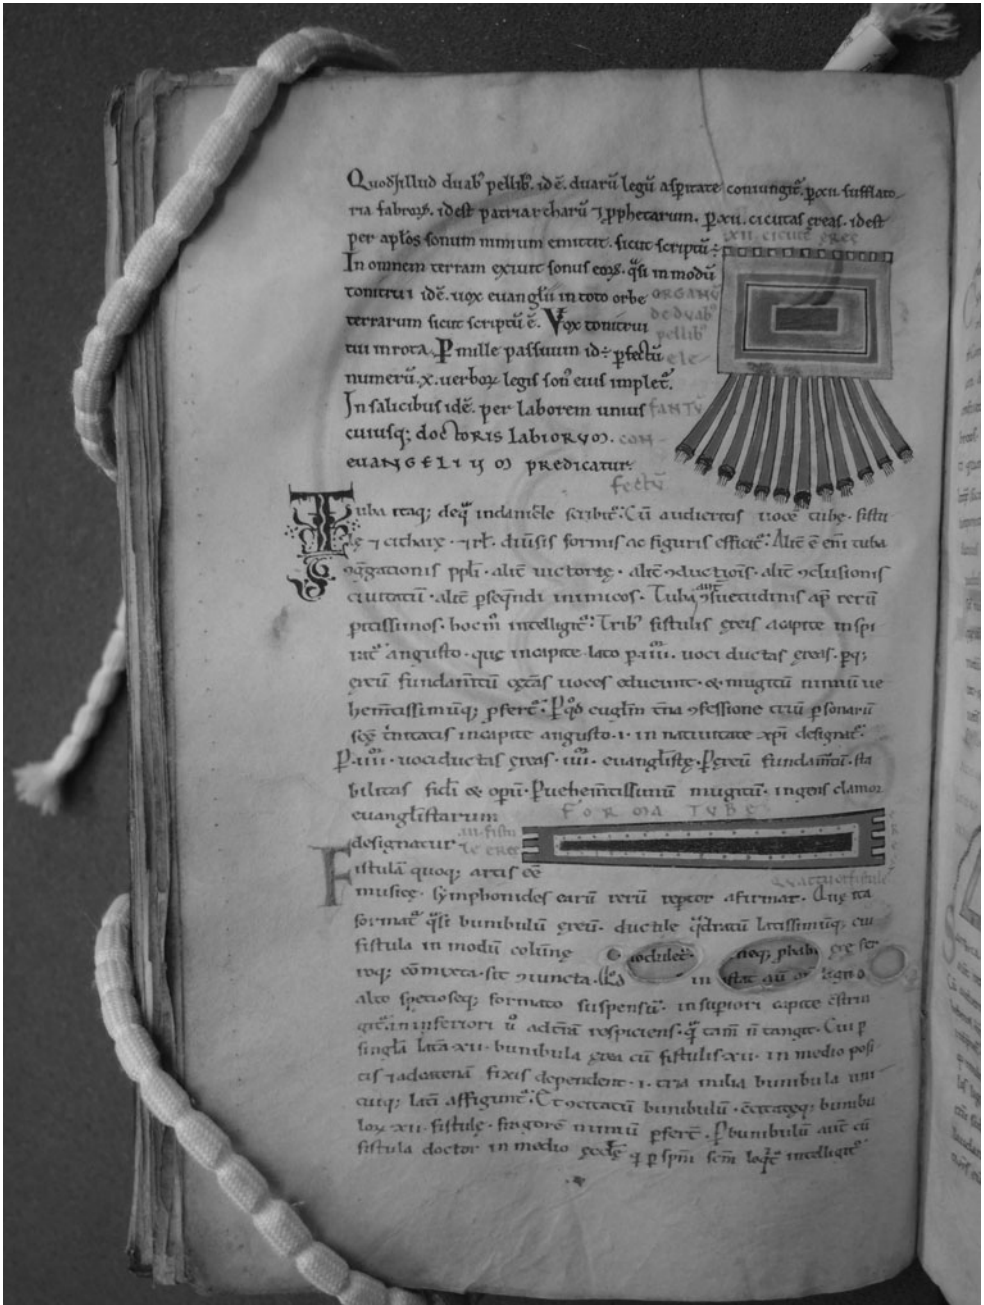 Quod illud duab' pellib'. id ē. duarū legū asperitate coniungit̄. p xii. sufflato
ria fabroꝝ. id est patriarcharū ⁊ ꝓphetarum. p xii. cicutas ęreas. id est
per aplos sonum nimium emittit. sicut scriptū ÷
xii. cicutę ęreę
In omnem terram exivit sonus eoꝝ. q̄si in modū
tonitrui id ē. vox evangłii in toto orbe
ORGANŪ
terrarum sicut scriptū ē. Vox tonitrui
de duab'
pellib'
tui in rota. P mille passuum id ÷ pfectū
ele
numerū. x. verboꝝ legis son' eius implet̄.
In salicibus id ē. per laborem unius
FANTŪ
cuiusq; doctoris labiorum.
con
EVANGELIUM predicatur.
fectū
Tuba itaq; de q̄ in daniele scribit̄: Cū audieritis vocē tubę. fistu
lę ⁊ citharę. ⁊ rł. divsis formis ac figuris efficit̄: Alit̄ ē eni tuba
ꝯḡgationis ppli. alit̄ victorię. alit̄ ꝯductiois. alit̄ ꝯclusionis
civitatū. alit̄ pseq̄ndi inimicos. Tuba aut̄ ꝯsuetudinis ap̄ rerū
pitissimos. hoc m̊ intelligit̄: Trib' fistulis ęreis a capite inspi
rat̄ angusto. quę in capite lato p .iiii. voci ductas ęreas. p q;
ęreū fundam̄tū cęt̄as voces educunt. & mugitū nimiū ve
hem̄tissimūq; pfert̄: P q̊d euglm t̄na ꝯfessione triū psonarū
scę t̄nitatis in capite angusto .i. in nativitate xp̄i designat̄.
P .iiii. voci ductas ęreas. iiii. evanglistę. P ęreū fundam̄tū. sta
bilitas fidei & opū. P vehem̄tissimū mugitū. ingens clamor
evanglistarum
FORMA TUBĘ
designatur
iii. fistu
lę ęreę
Quattuor fistulę
Fistulā quoq; artis eē
musicę. symphonides earū rerū reptor afirmat. Quę ita
format̄ q̄si bumbulū ęreū. ductile q̄dratū latissimūq; cui
fistula in modū colūnę
ęre fer
roq; cōmixta. sic ꝯiuncta.
in
ligno
alto speciosoq; formato suspensū. in supiori capite cstrin
git̄. in inferiori v̊ ad t̄rā respiciens. q̄ tam̄ n̄ tangit. Cui p
singła lat̄a xii. bumbula ęrea cū fistulis xii. in medio posi
tis ⁊ a dorsenā fixis dependent. i. tria milia bumbula uni
cuiq; lat̄i affigunt̄. Et ꝯcitatū bumbulū. ꝯcitatęq; bumbu
loꝝ xii. fistulę. fragorē nimiū pfert̄. P bumbulū aut̄ cū
fistula doctor in medio ęccłę q̣ p spm scm loq̄t̄ intelligit̄